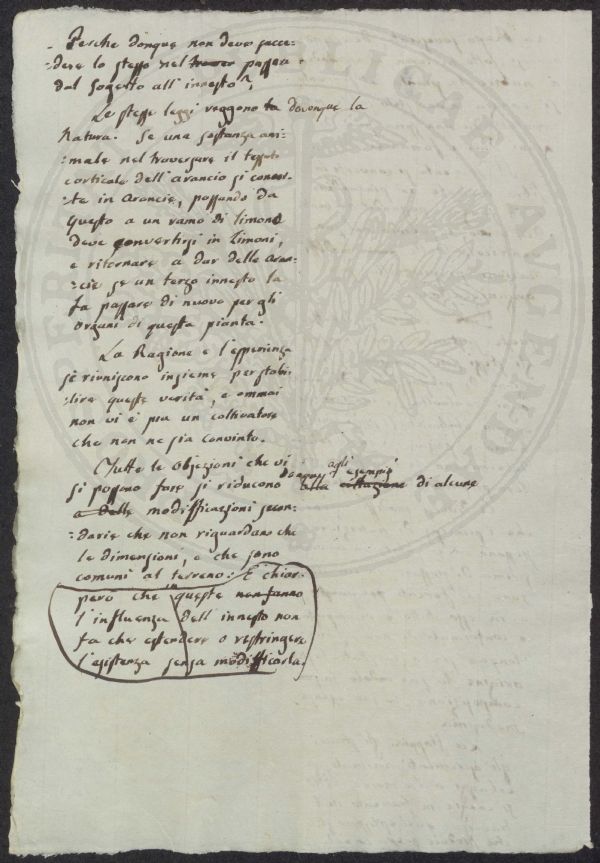 Perche donque non deve succe-
-dere lo stesso nel passar
dal Sogetto all' innesto?
Le stesse leggi reggono dovonque la
Natura. Se una sostanza ani-
-male nel traversare il tessuto
corticale dell'arancio si conver-
-te in Arancie, passando da
questo a un ramo di limone
deve convertirsi in Limoni,
e ritornare a dar delle Aran-
-cie se un terzo innesto la
fa passare di nuovo per gli
organi di questa pianta.
La Ragione e l'esperienza
si riuniscono insieme per stabi-
-lire queste verità, e ommai
non vi è piu un coltivatore
che non ne sia convinto.
Tutte le Objezioni che vi
si possono fare si riducono agli esempi alla citazione di alcune
a delle modifficazioni secon-
-darie che non riguardano che
le dimensioni, e che sono
comuni al terreno: È chiar
però che queste non fanno
l'influenza dell' innesto non
fa che estendere o restringere
l'esistenza senza modifficarla.